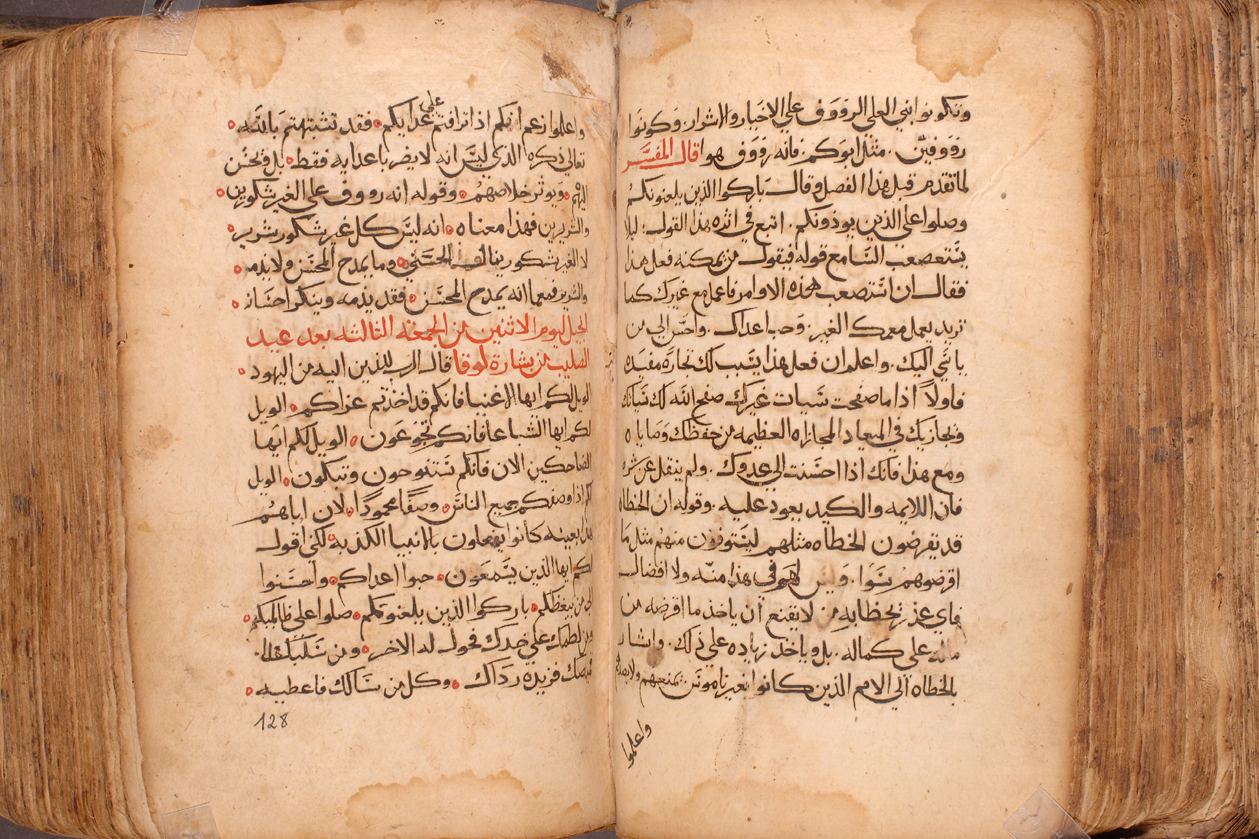 وتكونوا بني العلي الرووف علي الاخيار والاشرار. وكونوا
رووفين. مثل ابوكم. فانه رووف هو قال المفسر
لما تقدم قبل هذا الفصل وقال باركوا الذين يلعنونكم
وصلوا علي الذين يوذونكم. اتبع في اثره هذا القول. ليلا
يتصعب السامع قوله فيقول من يمكنه فعل هذا
فقال ان اتصعب هذه الاوامر فاعمل مع غيرك كما
تريد يعمل معك الغير. وحب اعداك. واحسن الي من
ياسي اليك. واعلم ان فعل هذا يسبب لك تجارة مفيده
فاولاً اذا ما صفحت سيات غيرك صفح الله لك سياتك
ويجازيك في المعاد المجازاه العظيمه من حفظك وصاياه
ومع هذا فانك اذا احسنت الي عدوك. ولم ينقل عن شره
فان اللايمه والكيد يعود عليه. وقوله ان الخطاه
قد يقرضون الخطاه مثلهم ليستوفون منهم مثل ما
اقرضوهم سوا. وليس لهم في هذا منه ولا افضال
فاي عذر من لا يقنع ان ياخذ ما اقرضه من
علي كماله. بل وياخذ زياده علي ذلك. واشار
بالخطاه الي الامم الذين كانوا بغير ناموس يمنعهم
واعلموا
واعلموا زعم انكم اذا ترافتم علي عدايكم فقد تشبهتم بالله
تعالي ذكره الذي ليس انه لا يضر باعدايه فقط بل ويحسن
اليهم ويوثر خلاصهم وقوله انه رووف علي الغير شكورين
والشريرين فهذا معناه انه ليس كل غير شكور شرير
لا الغير شكور ينال الحسني وما يمدح المحسن ولا يذمه
والشرير فمهما انه يمدح المحسن فقد يذمه وينكر احسانه
انجيل ليوم الاثنين من الجمعه الثالثه بعد عيد
الصليب من بشارة لوقا قال الرب للذين اليه من اليهود
الويل لكم ايها الاغنيا فانكم قد اخذتم عزاكم الويل
لكم ايها الشباعا فانكم تجوعون الويل لكم ايها
الضاحكين الان فانكم ستنوحون وتبكون الويل
لكم اذا وصفكم جميع الناس وصفًا محمودًا لان اباهم
هذا بعينه كانوا يفعلون بالانبيا الكذبه لكني اقول
لكم ايها الذين يسمعون حبوا اعداكم واحسنوا
الي من يبغضكم باركوا الذين يلعنونكم صلوا علي ظالميكم
من لطمك علي خدك فحول له الاخر ومن سلبك
قميصك فزيده رداك وكل من سالك فاعطيه
128